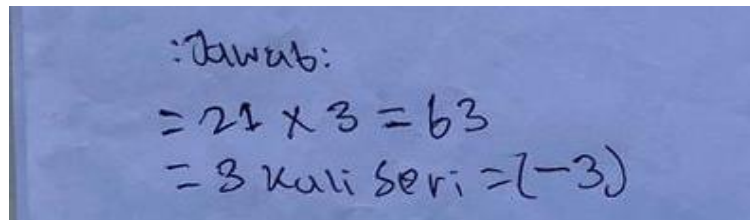 :Jawab:
= 21 x 3 = 63
= 3 kali seri = (-3)